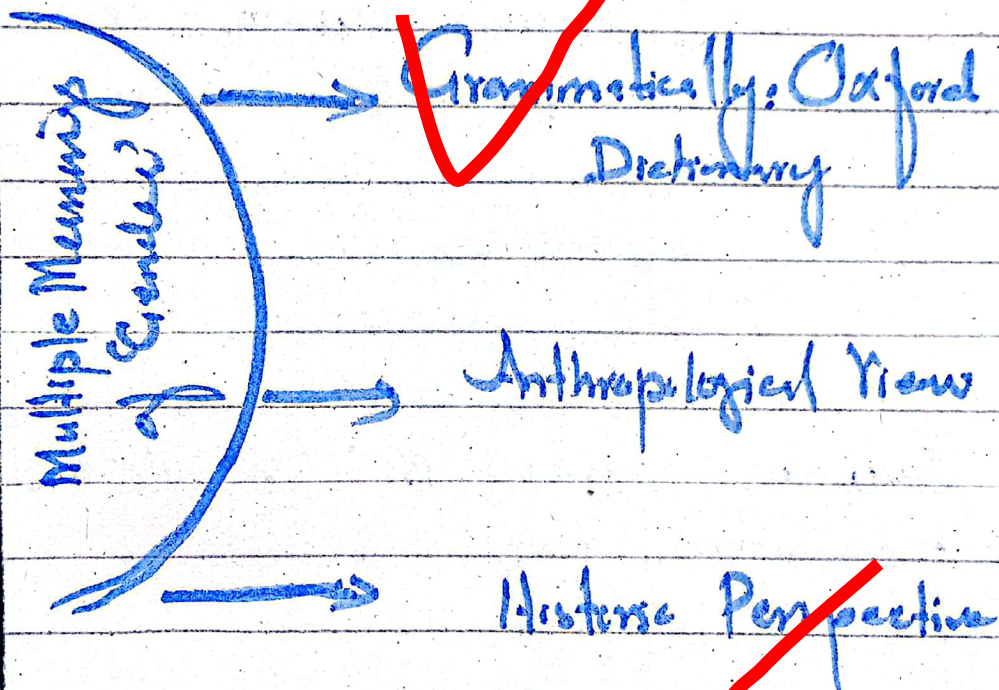 Multiple Meaning
of Gender
Grammatically: Oxford
Dictionary
Anthropological View
Historic Perspective